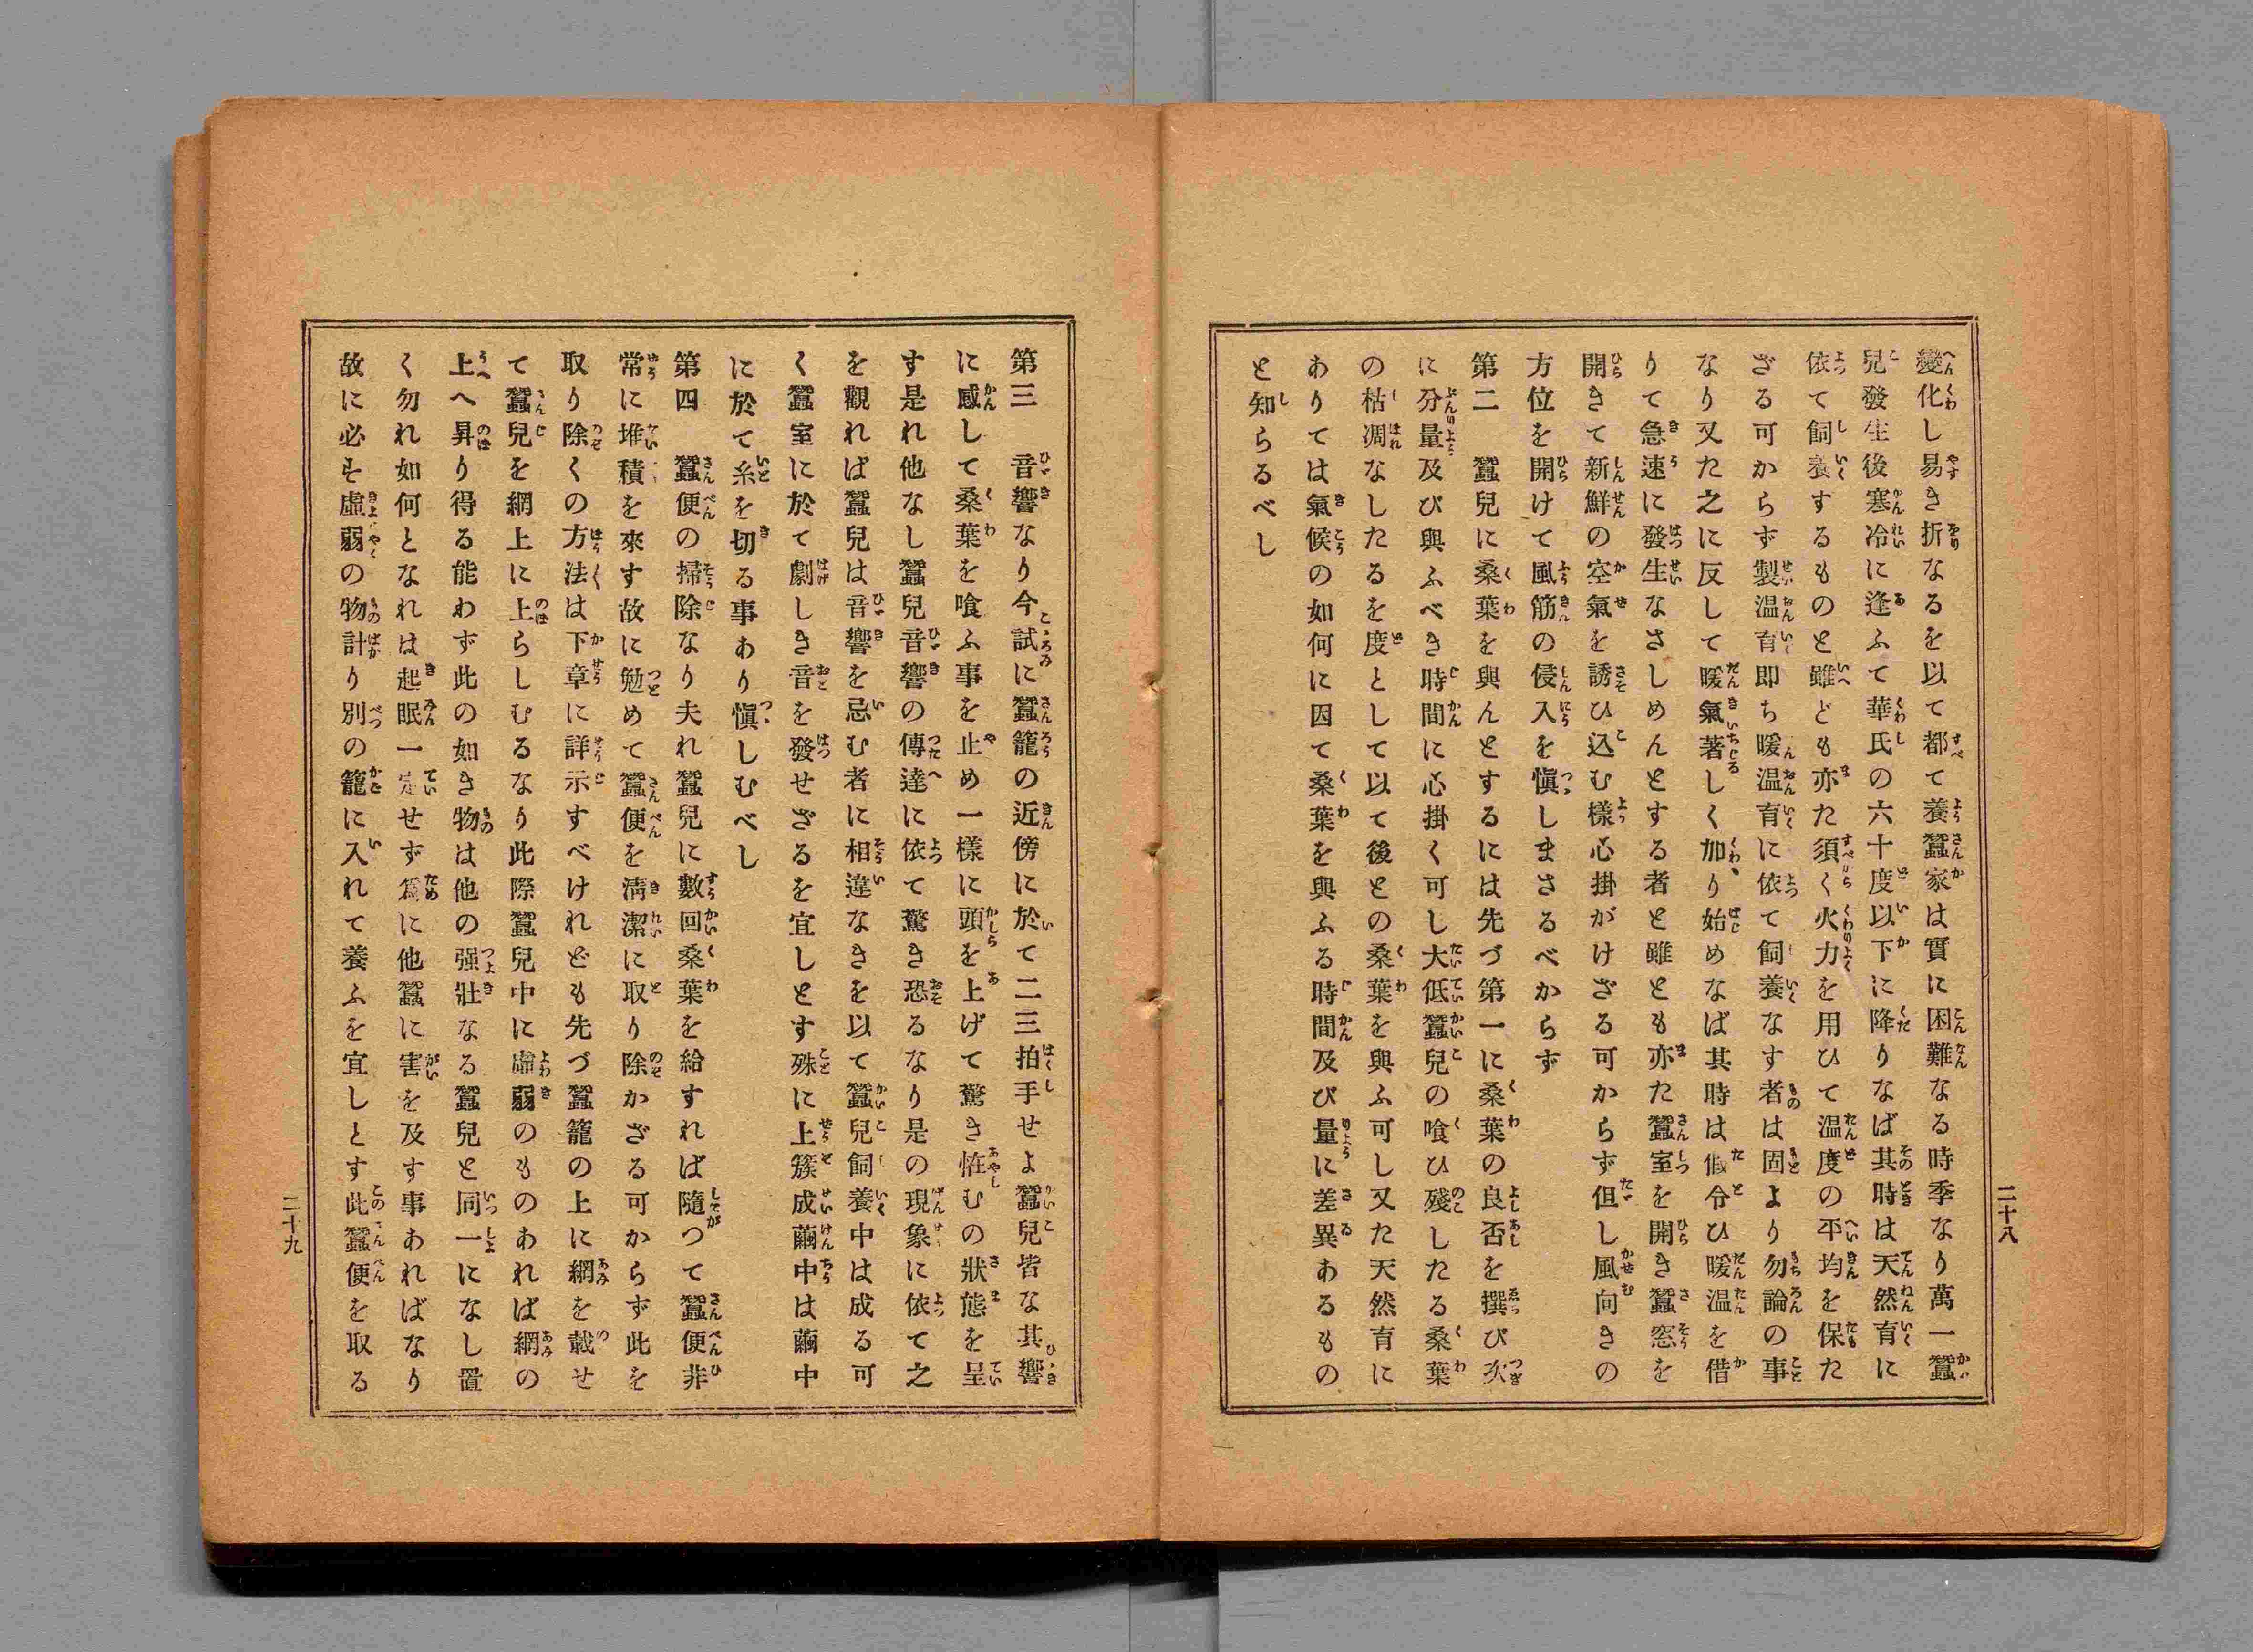 變化し易き折なるを以て都て養蠶家は實に困難なる時季なり萬一蠶
兒發生後寒冷に逢ふて華氏の六十度以下に降りなば其時は天然育に
依て飼養するものと雖ども亦た須く火力を用ひて温度の平均を保た
ざる可からず製温育即ち暖温育に依て飼養なす者は固より勿論の事
なり又た之に反して暖氣著しく加り始めなば其時は假令ひ暖温を借
りて急速に發生なさしめんとする者と雖とも亦た蠶室を開き蠶窓を
開きて新鮮の空氣を誘ひ込む樣心掛がけざる可からず但し風向きの
方位を開けて風筋の侵入を愼しまさるべからず
第二　蠶兒に桑葉を與んとするには先づ第一に桑葉の良否を撰び次
に分量及び與ふべき時間に心掛く可し大低蠶兒の喰ひ殘したる桑葉
の枯凋なしたるを度として以て後との桑葉を與ふ可し又た天然育に
ありては氣候の如何に因て桑葉を與ふる時間及び量に差異あるもの
と知らるべし
二十八
第三　音響なり今試に蠶籠の近傍に於て二三拍手せよ蠶兒皆な其響
に感して桑葉を喰ふ事を止め一樣に頭を上げて驚き恠むの狀態を呈
す是れ他なし蠶兒音響の傳達に依て驚き恐るなり是の現象に依て之
を觀れば蠶兒は音響を忌む者に相違なきを以て蠶兒飼養中は成る可
く蠶室に於て劇しき音を發せざるを宜しとす殊に上簇成繭中は繭中
に於て糸を切る事あり愼しむべし
第四　蠶便の掃除なり夫れ蠶兒に數回桑葉を給すれば隨つて蠶便非
常に堆積を來す故に勉めて蠶便を淸潔に取り除かざる可からず此を
取り除くの方法は下章に詳示すべけれども先づ蠶籠の上に網を載せ
て蠶兒を網上に上らしむるなり此際蠶兒中に虛弱のものあれば網の
上へ昇り得る能わず此の如き物は他の强壯なる蠶兒と同一になし置
く勿れ如何となれは起眠一定せず爲に他蠶に害を及す事あればなり
故に必ず虛弱の物計り別の籠に入れて養ふを宜しとす此蠶便を取る
二十九